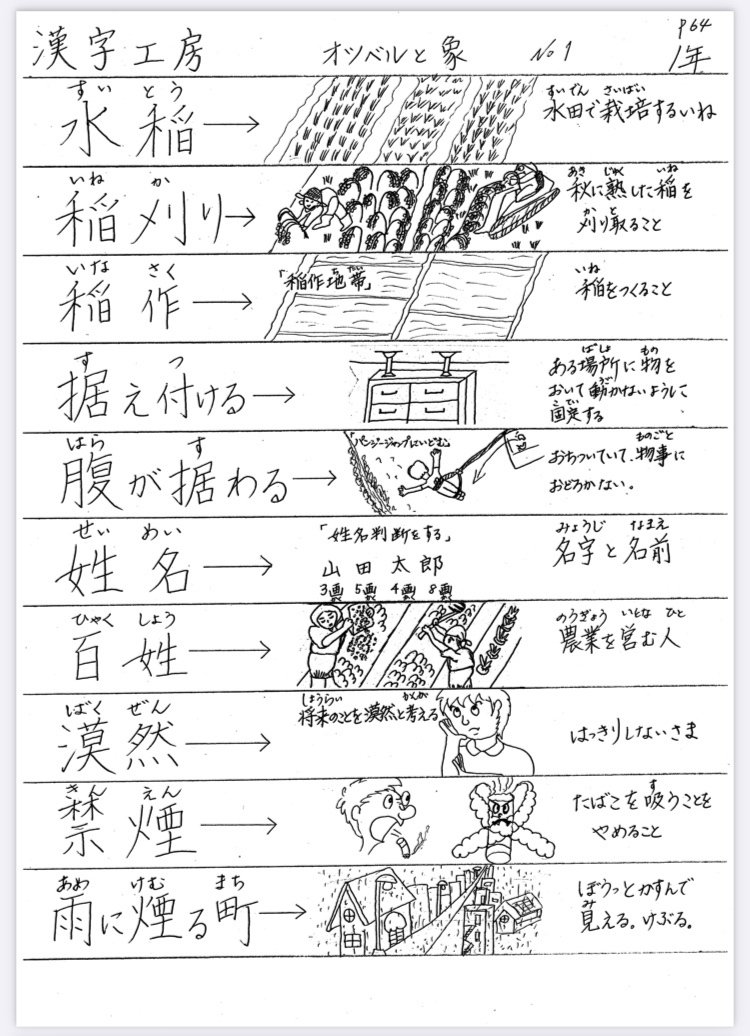 P64
漢字工房 オツベルと象 No 1 1年
すいとう
水稲
すいでん さいばい
水田で栽培するいね
いね か
稲刈り
あき じゅく いね
秋に熟した稲を
か と
刈り取ること
いな さく
稲作
「稲作地帯」
ちたい
いね
稲をつくること
す つ
据え付ける
ばしょ もの
ある場所に物を
うご
おいて動かないように
こてい
固定する
はら す
腹が据わる
「バンジージャンプにいどむ」
ものごと
おちついていて、物事に
おどろかない。
せい めい
姓名
「姓名判断をする」
山田太郎
3画 5画 4画 8画
かく かく かく かく
みょうじ なまえ
名字と名前
ひゃく しょう
百姓
のうぎょう いとな ひと
農業を営む人
ばく ぜん
漠然
しょうらい かんが
将来のことを漠然と考える
はっきりしないさま
きん えん
禁煙
す
たばこを吸うことを
やめること
あめ けむ まち
雨に煙る町
ぼうっとかすんで
み
見える。けぶる。